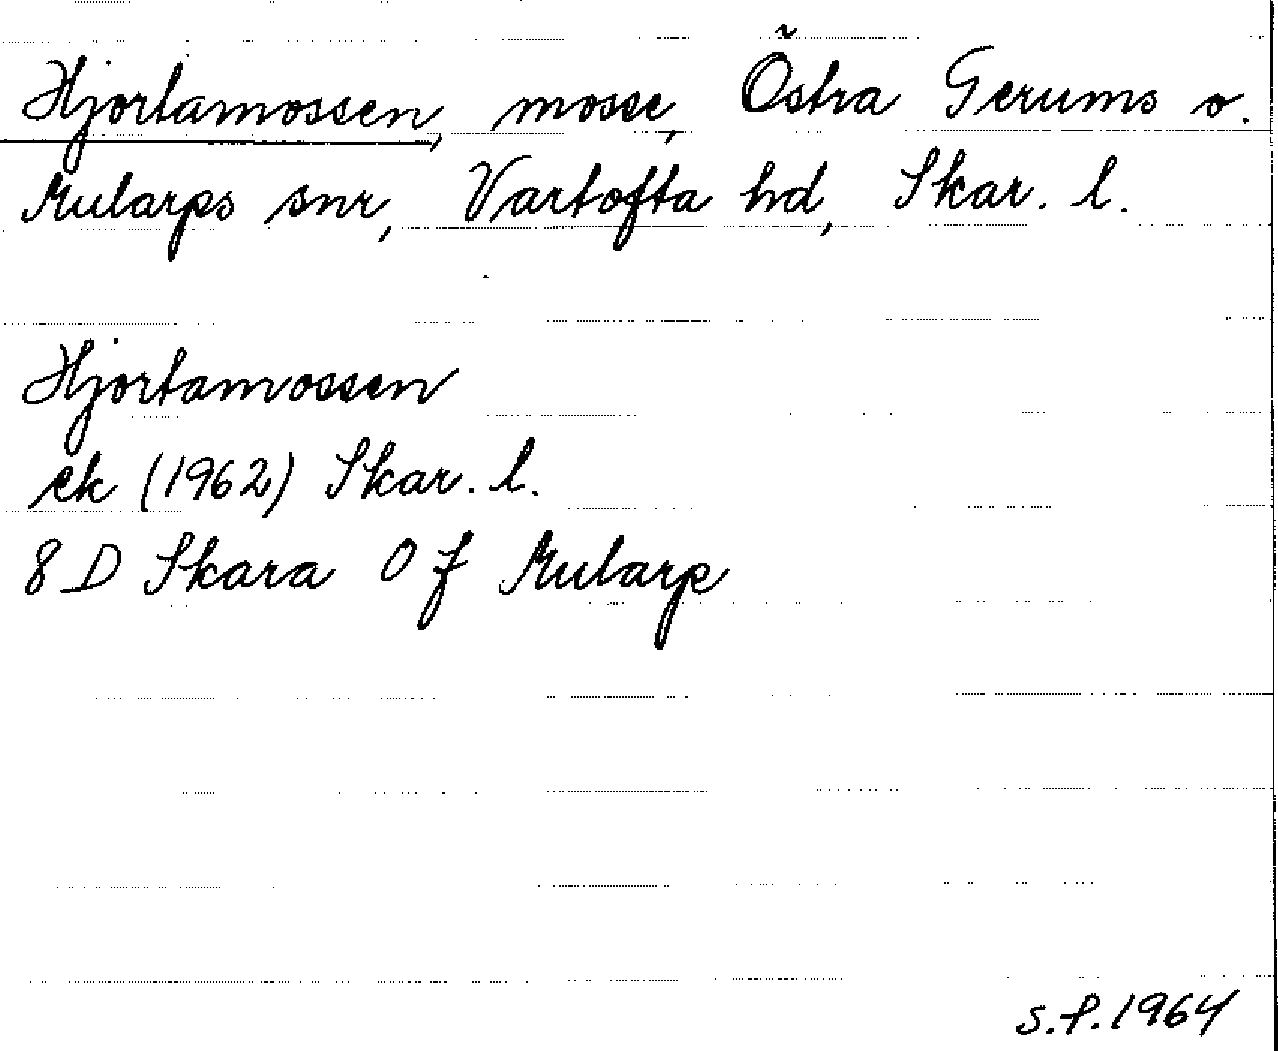 Hjortamossen, mosse, Östra Gerums o.
Mularps snr, Vartofta hd, Skar. l.
Hjortamossen
ek (1962) Skar. l.
8 D Skara 0 f Mularp
S.F. 1964